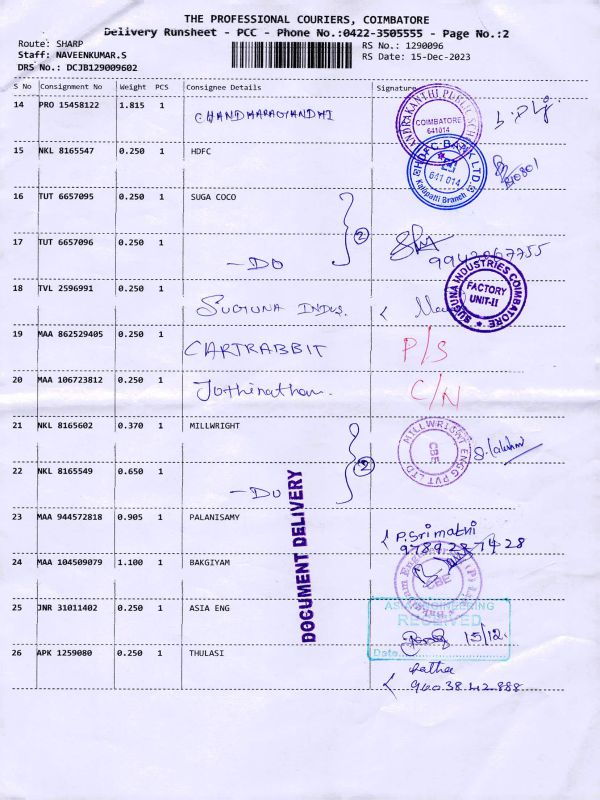 THE PROFESSIONAL COURIERS, COIMBATORE
Delivery Runsheet - PCC - Phone No.:0422-3505555 - Page No.:2
Route: SHARP
Staff: NAVEENKUMAR.S
DRS No.: DCJB129009602
RS No.: 1290096
RS Date: 15-Dec-2023
S No Consignment No Weight PCS Consignee Details Signature
14 PRO 15458122 1.815 1 CHANDHARAGHANDHI
COIMBATORE
641014
15 NKL 8165547 0.250 1 HDFC
HDFC BANK LTD.
641 014
Kalapatti Branch
16 TUT 6657095 0.250 1 SUGA COCO
2
17 TUT 6657096 0.250 1 -DO
18 TVL 2596991 0.250 1 SUGUNA INDUS.
SUGUNA INDUSTRIES COIMBATORE
FACTORY
UNIT-II
19 MAA 862529405 0.250 1 CARTRABBIT P/S
20 MAA 106723812 0.250 1 Jothinathan. C/N
21 NKL 8165602 0.370 1 MILLWRIGHT
MILLWRIGHT ENGG PVT LTD.
CBE
2
22 NKL 8165549 0.650 1 -DO
DOCUMENT DELIVERY
23 MAA 944572818 0.905 1 PALANISAMY P.Srimathi
24 MAA 104509079 1.100 1 BAKGIYAM
CBE
25 JNR 31011402 0.250 1 ASIA ENG
ASIA ENGINEERING
RECEIVED
15/12.
Date
26 APK 1259080 0.250 1 THULASI